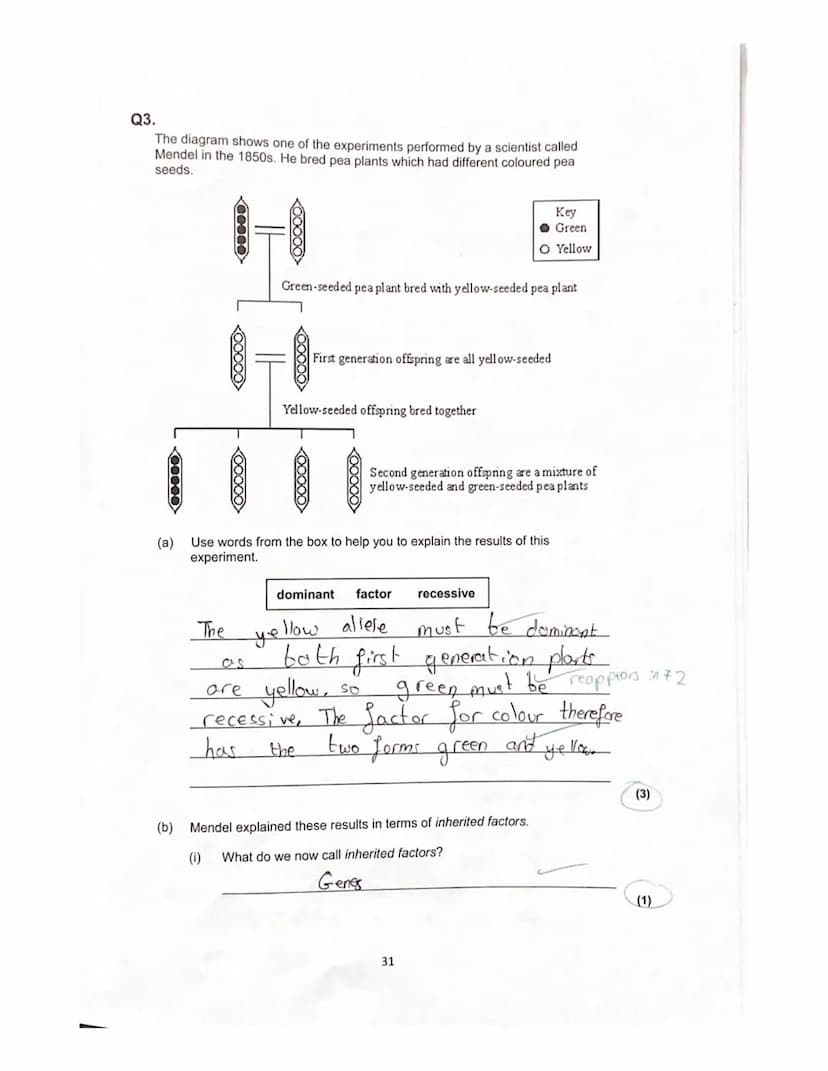 Q3.
The diagram shows one of the experiments performed by a scientist called
Mendel in the 1850s. He bred pea plants which had different coloured pea
seeds.
Key
Green
Yellow
Green-seeded pea plant bred with yellow-seeded pea plant
First generation offspring are all yellow-seeded
Yellow-seeded offspring bred together
Second generation offspring are a mixture of
yellow-seeded and green-seeded pea plants
(a) Use words from the box to help you to explain the results of this
experiment.
dominant factor recessive
The yellow allele must be dominant
as both first generation plants
are yellow, so green must be reappears in F2
recessive, The factor for colour therefore
has the two forms green and yellow
(3)
(b) Mendel explained these results in terms of inherited factors.
(i) What do we now call inherited factors?
Genes
(1)
31